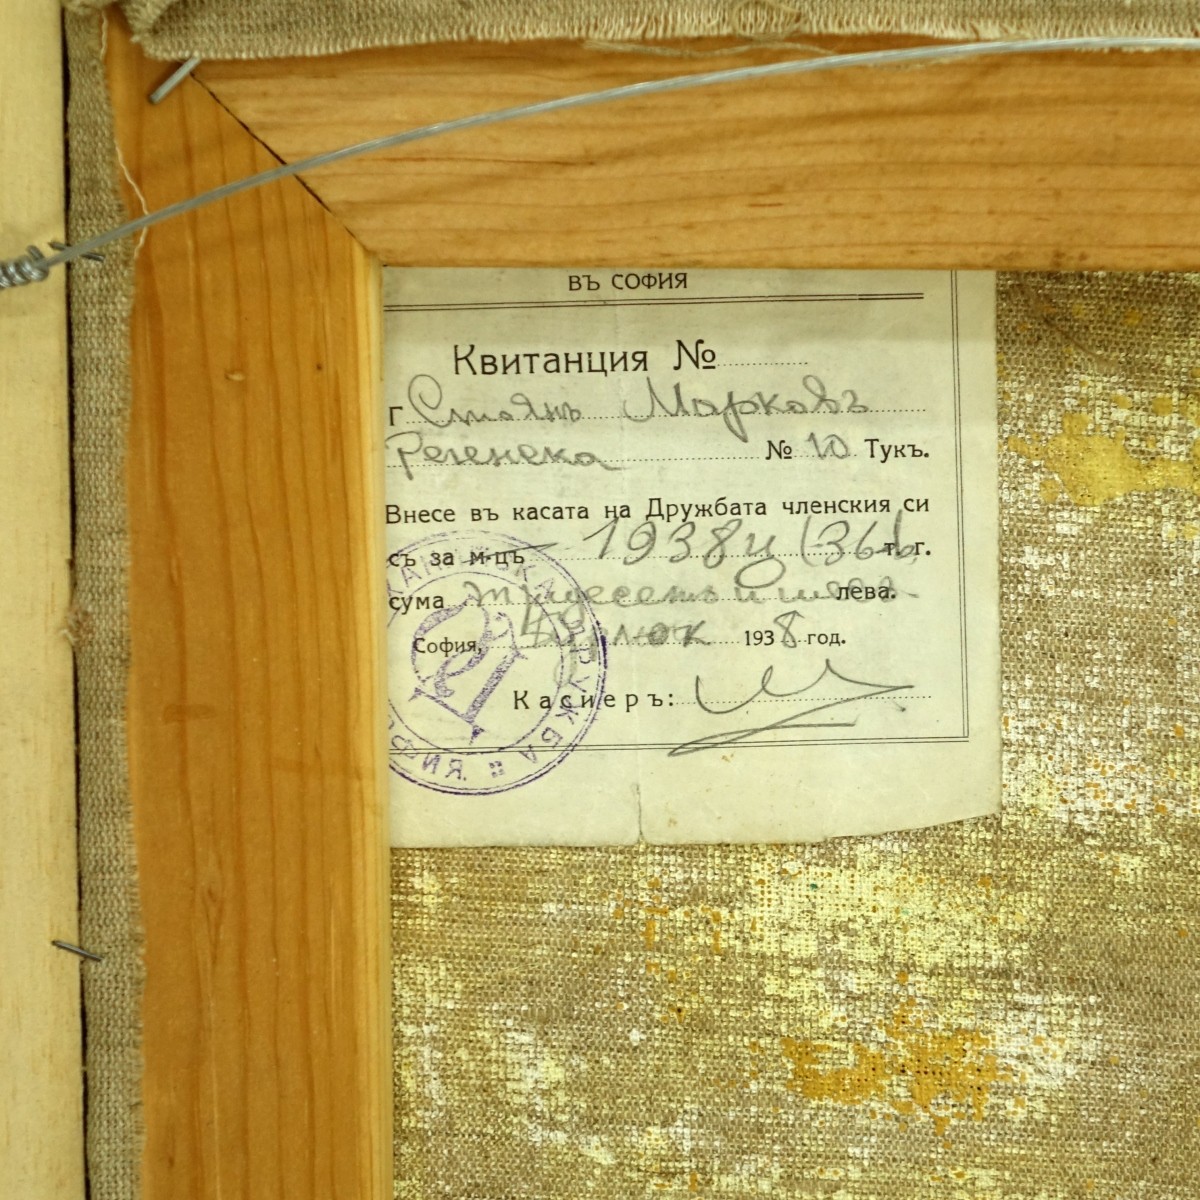 ВЪ СОФИЯ
Квитанция №
Г. Стоянъ Марковъ
Регенска № 10 Тукъ.
Внесе въ касата на Дружбата членския си
съ за м-цъ 1938 (36 т. г.
сума тридесеть и лева.
София, 1938 год.
Касиеръ:
ДРУЖБА